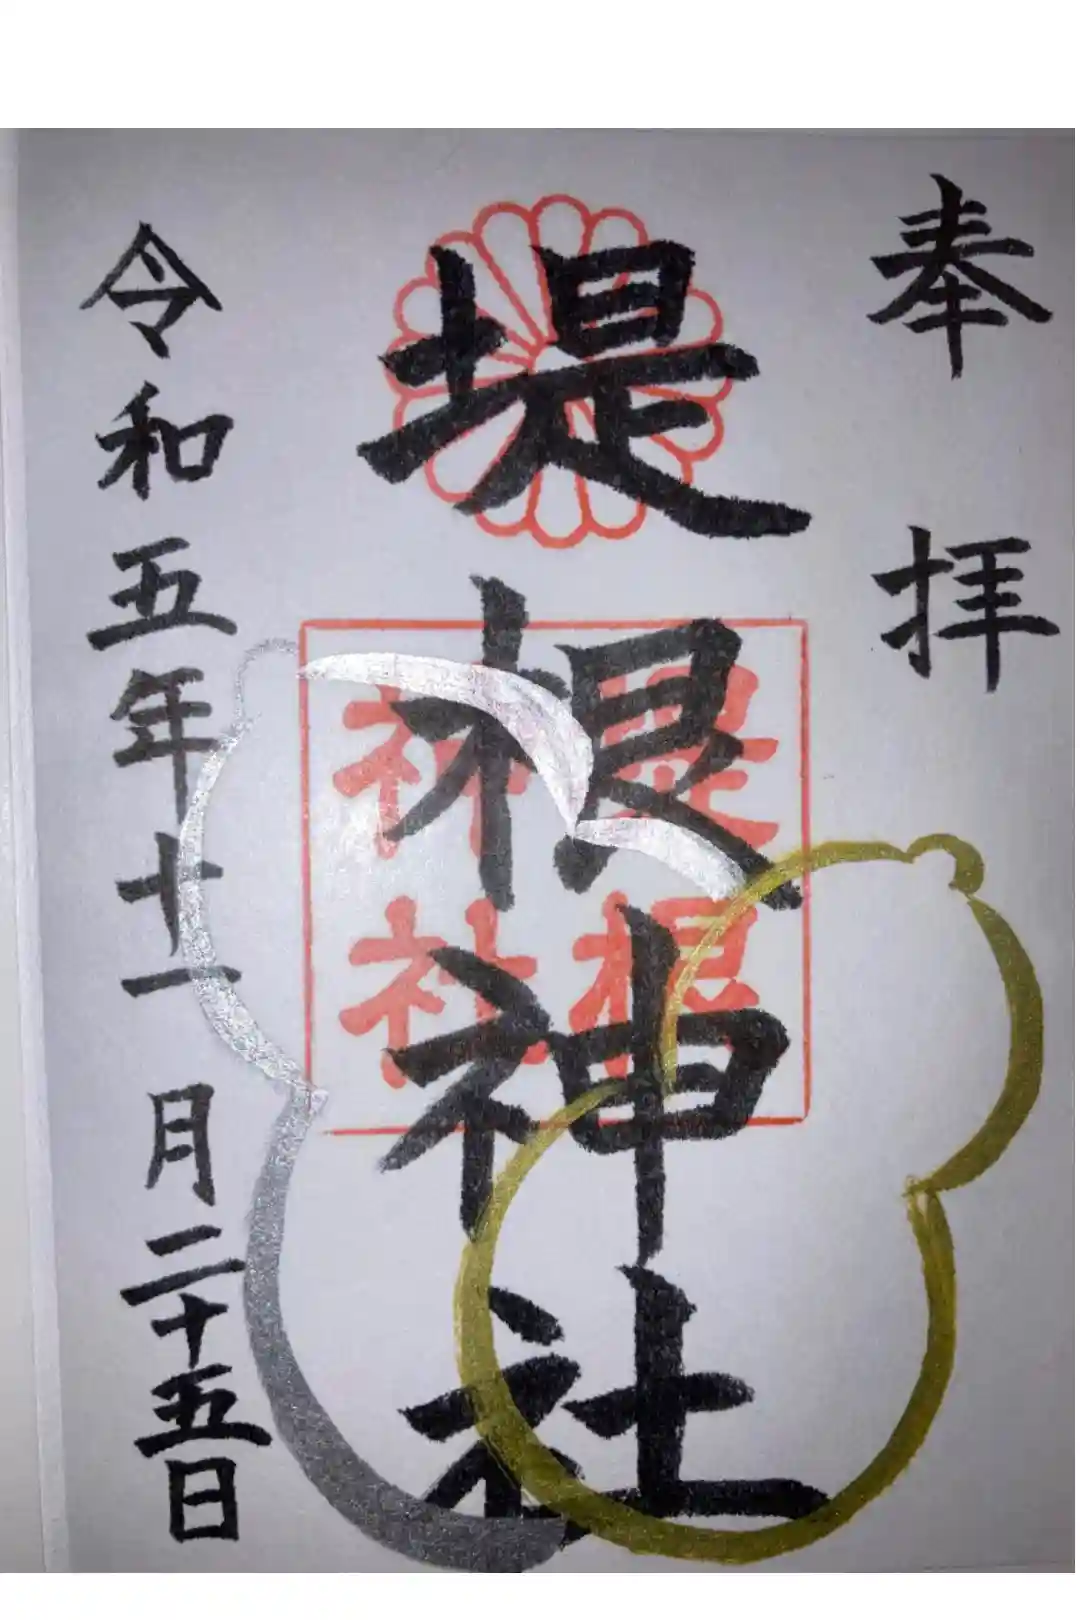 奉拝
堤根神社
堤根神社
令和五年十一月二十五日